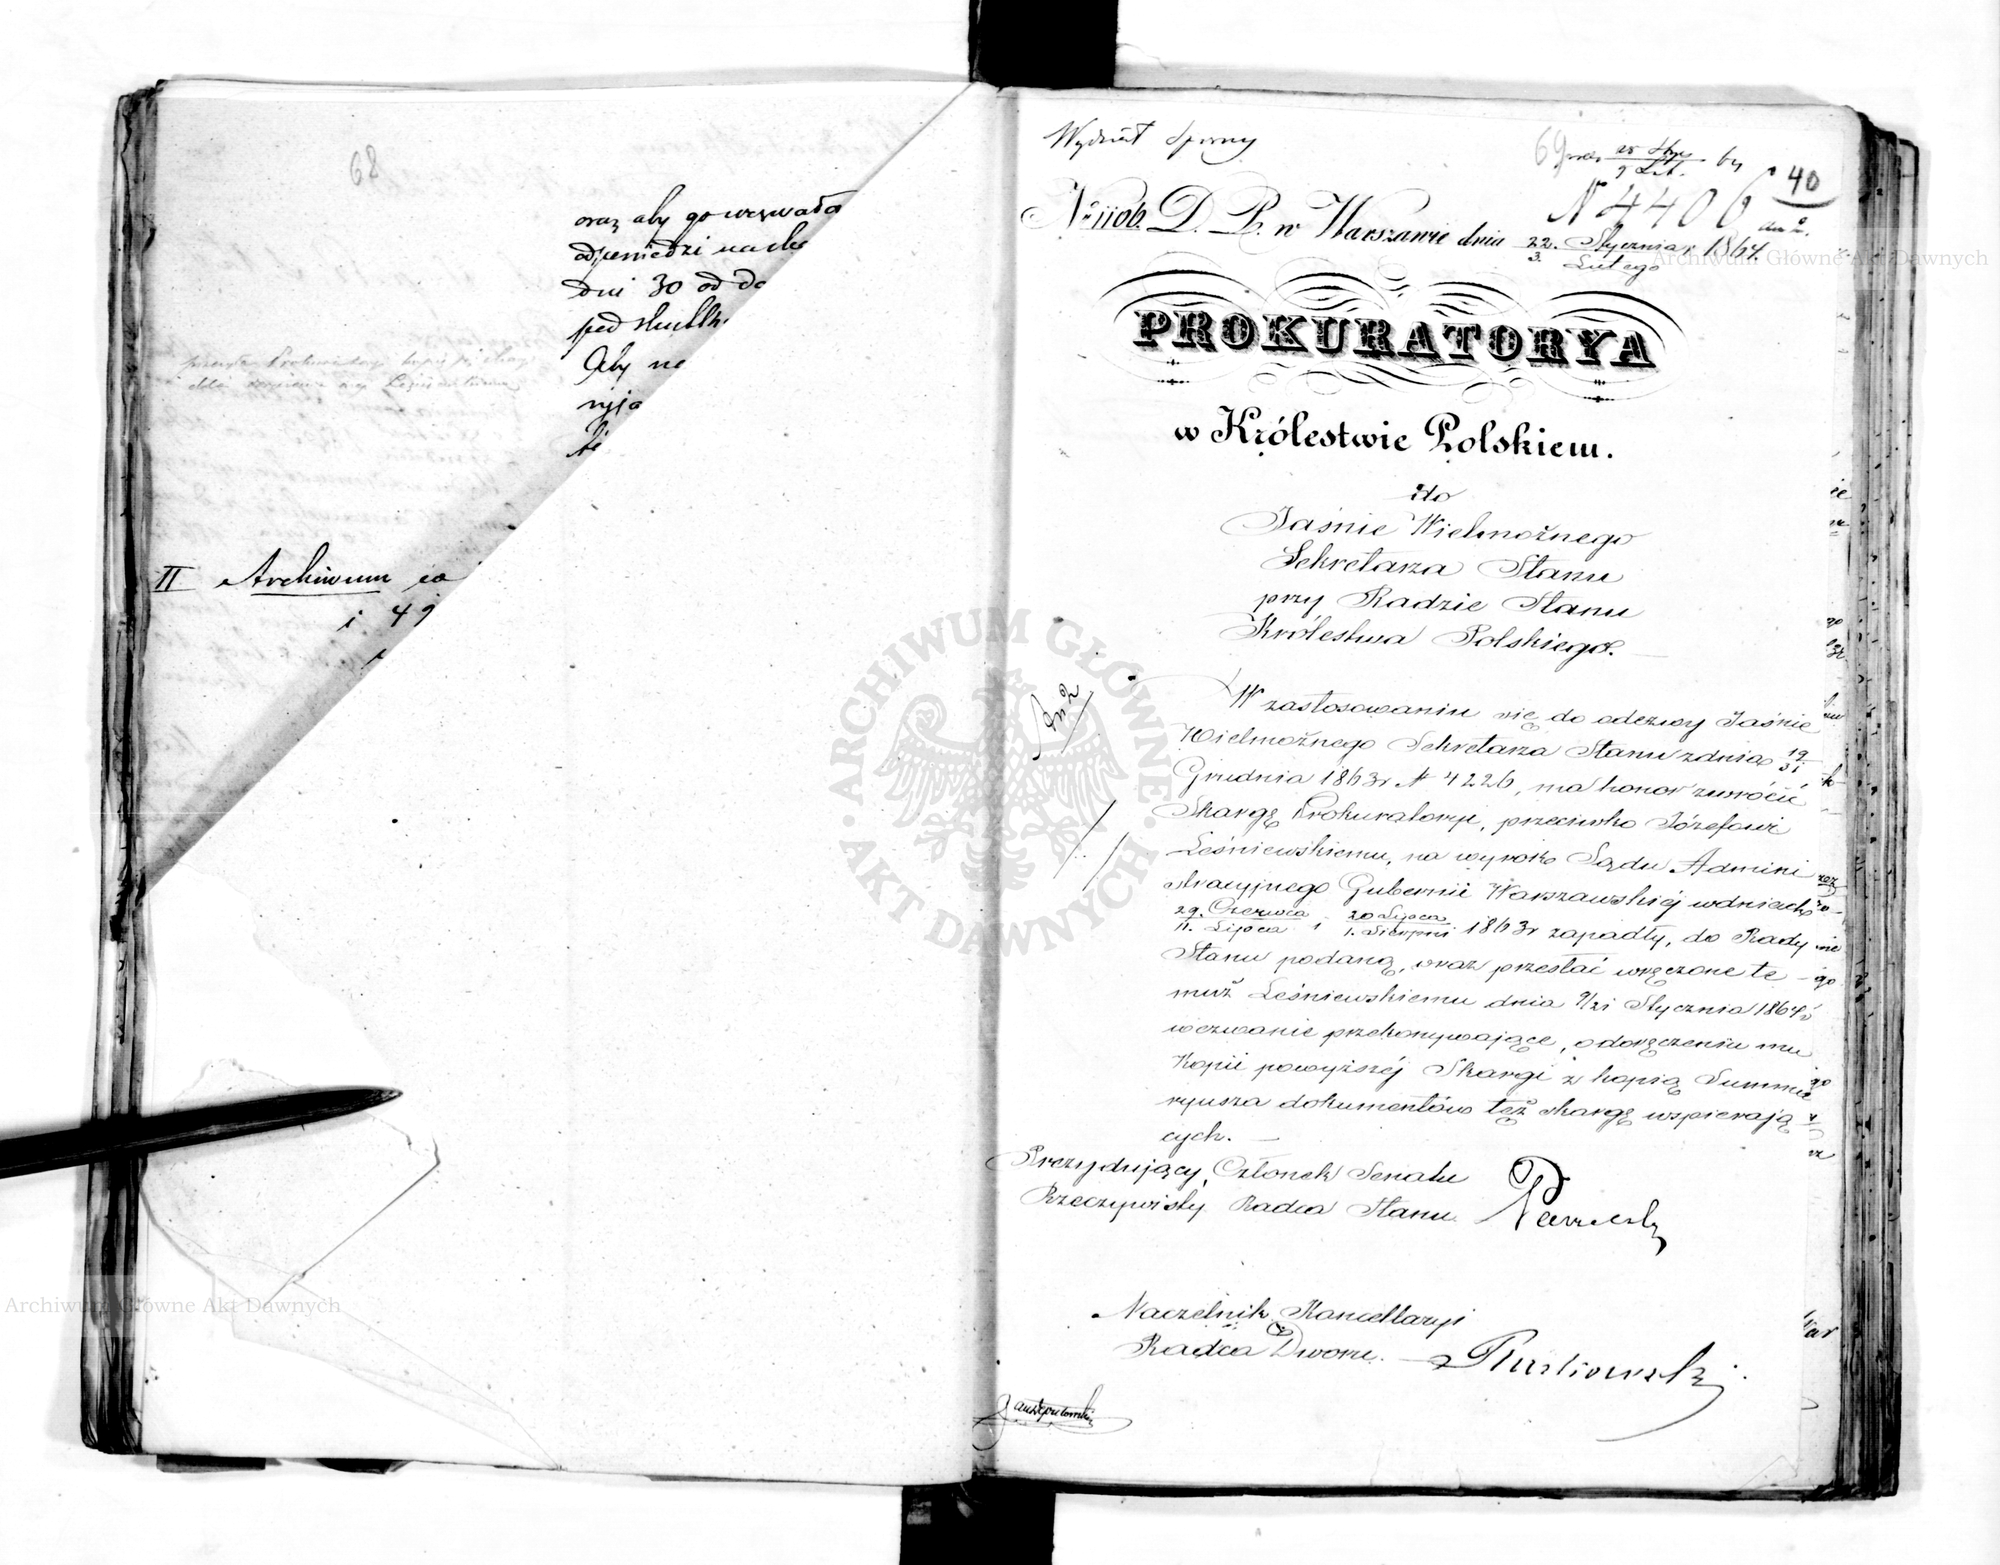 68
oraz aby go wezwała
odpowiedzi na ska
dni 30 od da
pod skutk
Aby na
II Archiwum
i 49
Wydział Sporny
69
40
N 4406
An 2.
N. 1106. D. P. w Warszawie dnia 22. Stycznia / 3. Lutego 1864.
PROKURATORYA
w Królestwie Polskiem.
do
Jaśnie Wielmożnego
Sekretarza Stanu
przy Radzie Stanu
Królestwa Polskiego.
An 2
W zastosowaniu się do odezwy Jaśnie
Wielmożnego Sekretarza Stanu z dnia 19/31
Grudnia 1863r N 4226, ma honor zwrócić
Skargę Prokuratoryi, przeciwko Józefowi
Leśniewskiemu, na wyrok Sądu Admini
stracyjnego Gubernii Warszawskiéj w dniach
29. Czerwca / 11. Lipca i 20 Lipca / 1. Sierpni 1863r zapadły, do Rady
Stanu podaną, wraz przesłać wręczone te
muż Leśniewskiemu dnia 9/21 Stycznia 1864r
wezwanie przekonywające, o doręczeniu mu
Kopii powyższéj Skargi z kopią Summa
ryusza dokumentów też skargę wspierają
cych.
Prezydujący, Członek Senatu
Rzeczywisty Radca Stanu
Naczelnik Kancellaryi
Radca Dworu.
ARCHIWUM GŁÓWNE AKT DAWNYCH
Archiwum Główne Akt Dawnych
Archiwum Główne Akt Dawnych